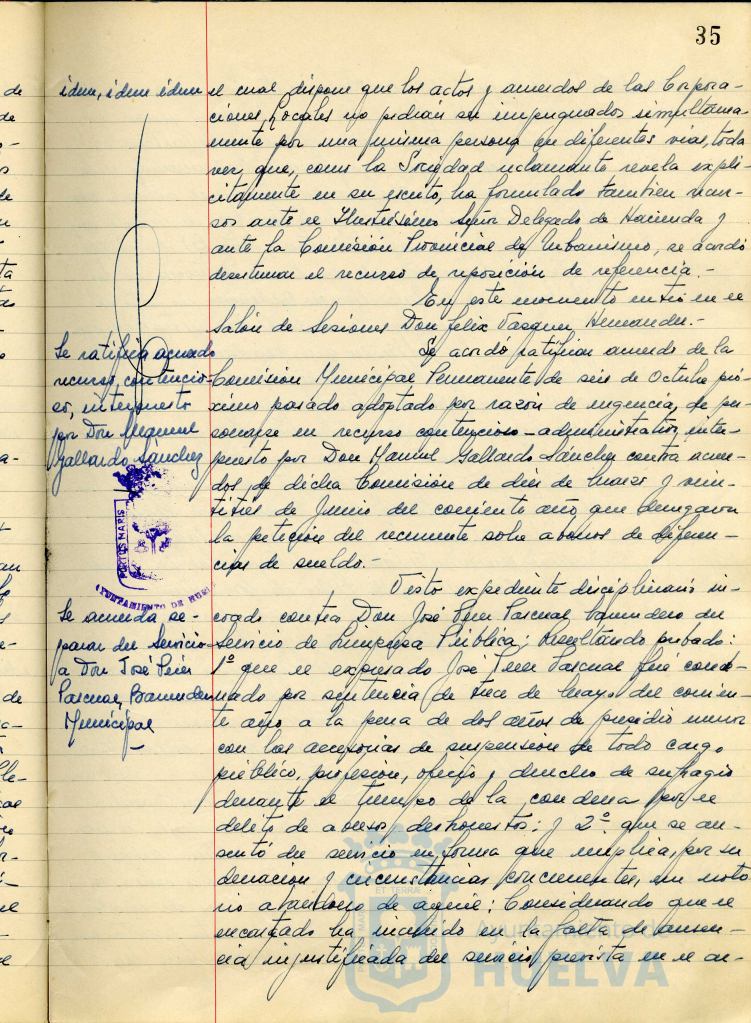 35
idem, idem idem
el cual dispone que los actos y acuerdos de las Corpora-
ciones Locales no podrán ser impugnados simultánea-
mente por una misma persona en diferentes vías, toda
vez que, como la Sociedad reclamante revela explí-
citamente en su escrito, ha formulado también recur-
sos ante el Ilustrísimo Señor Delegado de Hacienda y
ante la Comisión Provincial de Urbanismo, se acordó
desestimar el recurso de reposición de referencia.-
En este momento entró en el
Salón de Sesiones Don Felix Vazquez Hernandez.-
Se ratifica acuerdo
recurso contencio-
so, interpuesto
por Don Manuel
Gallardo Sánchez
Se acordó ratificar acuerdo de la
Comisión Municipal Permanente de seis de Octubre pró-
ximo pasado adoptado por razón de urgencia, de per-
sonarse en recurso contencioso-administrativo inter-
puesto por Don Manuel Gallardo Sánchez contra acuer-
dos de dicha Comisión de diez de Marzo y vein-
titres de Junio del corriente año, que denegaron
la petición del recurrente sobre abonos de diferen-
cias de sueldo.-
PORTUS MARIS
AYUNTAMIENTO DE HUELVA
Se acuerda se-
parar del Servicio
a Don José Pérez
Pascual, Barrendero
Municipal
Visto expediente disciplinario in-
coado contra Don José Perez Pascual barrendero del
Servicio de Limpieza Pública; Resultando probado:
1º que el expresado José Perez Pascual fue conde-
nado por sentencia de trece de Mayo del corrien-
te año a la pena de dos años de presidio menor
con las accesorias de suspensión de todo cargo
público, profesión, oficio y derecho de sufragio
durante el tiempo de la condena por el
delito de abusos deshonestos; y 2º que se au-
sentó del servicio en forma que implica, por su
duración y circunstancias concurrentes, un noto-
rio abandono de aquel: Considerando que el
encartado ha incurrido en la falta de ausen-
cia injustificada del servicio prevista en el ar-
Ayuntamiento de
HUELVA